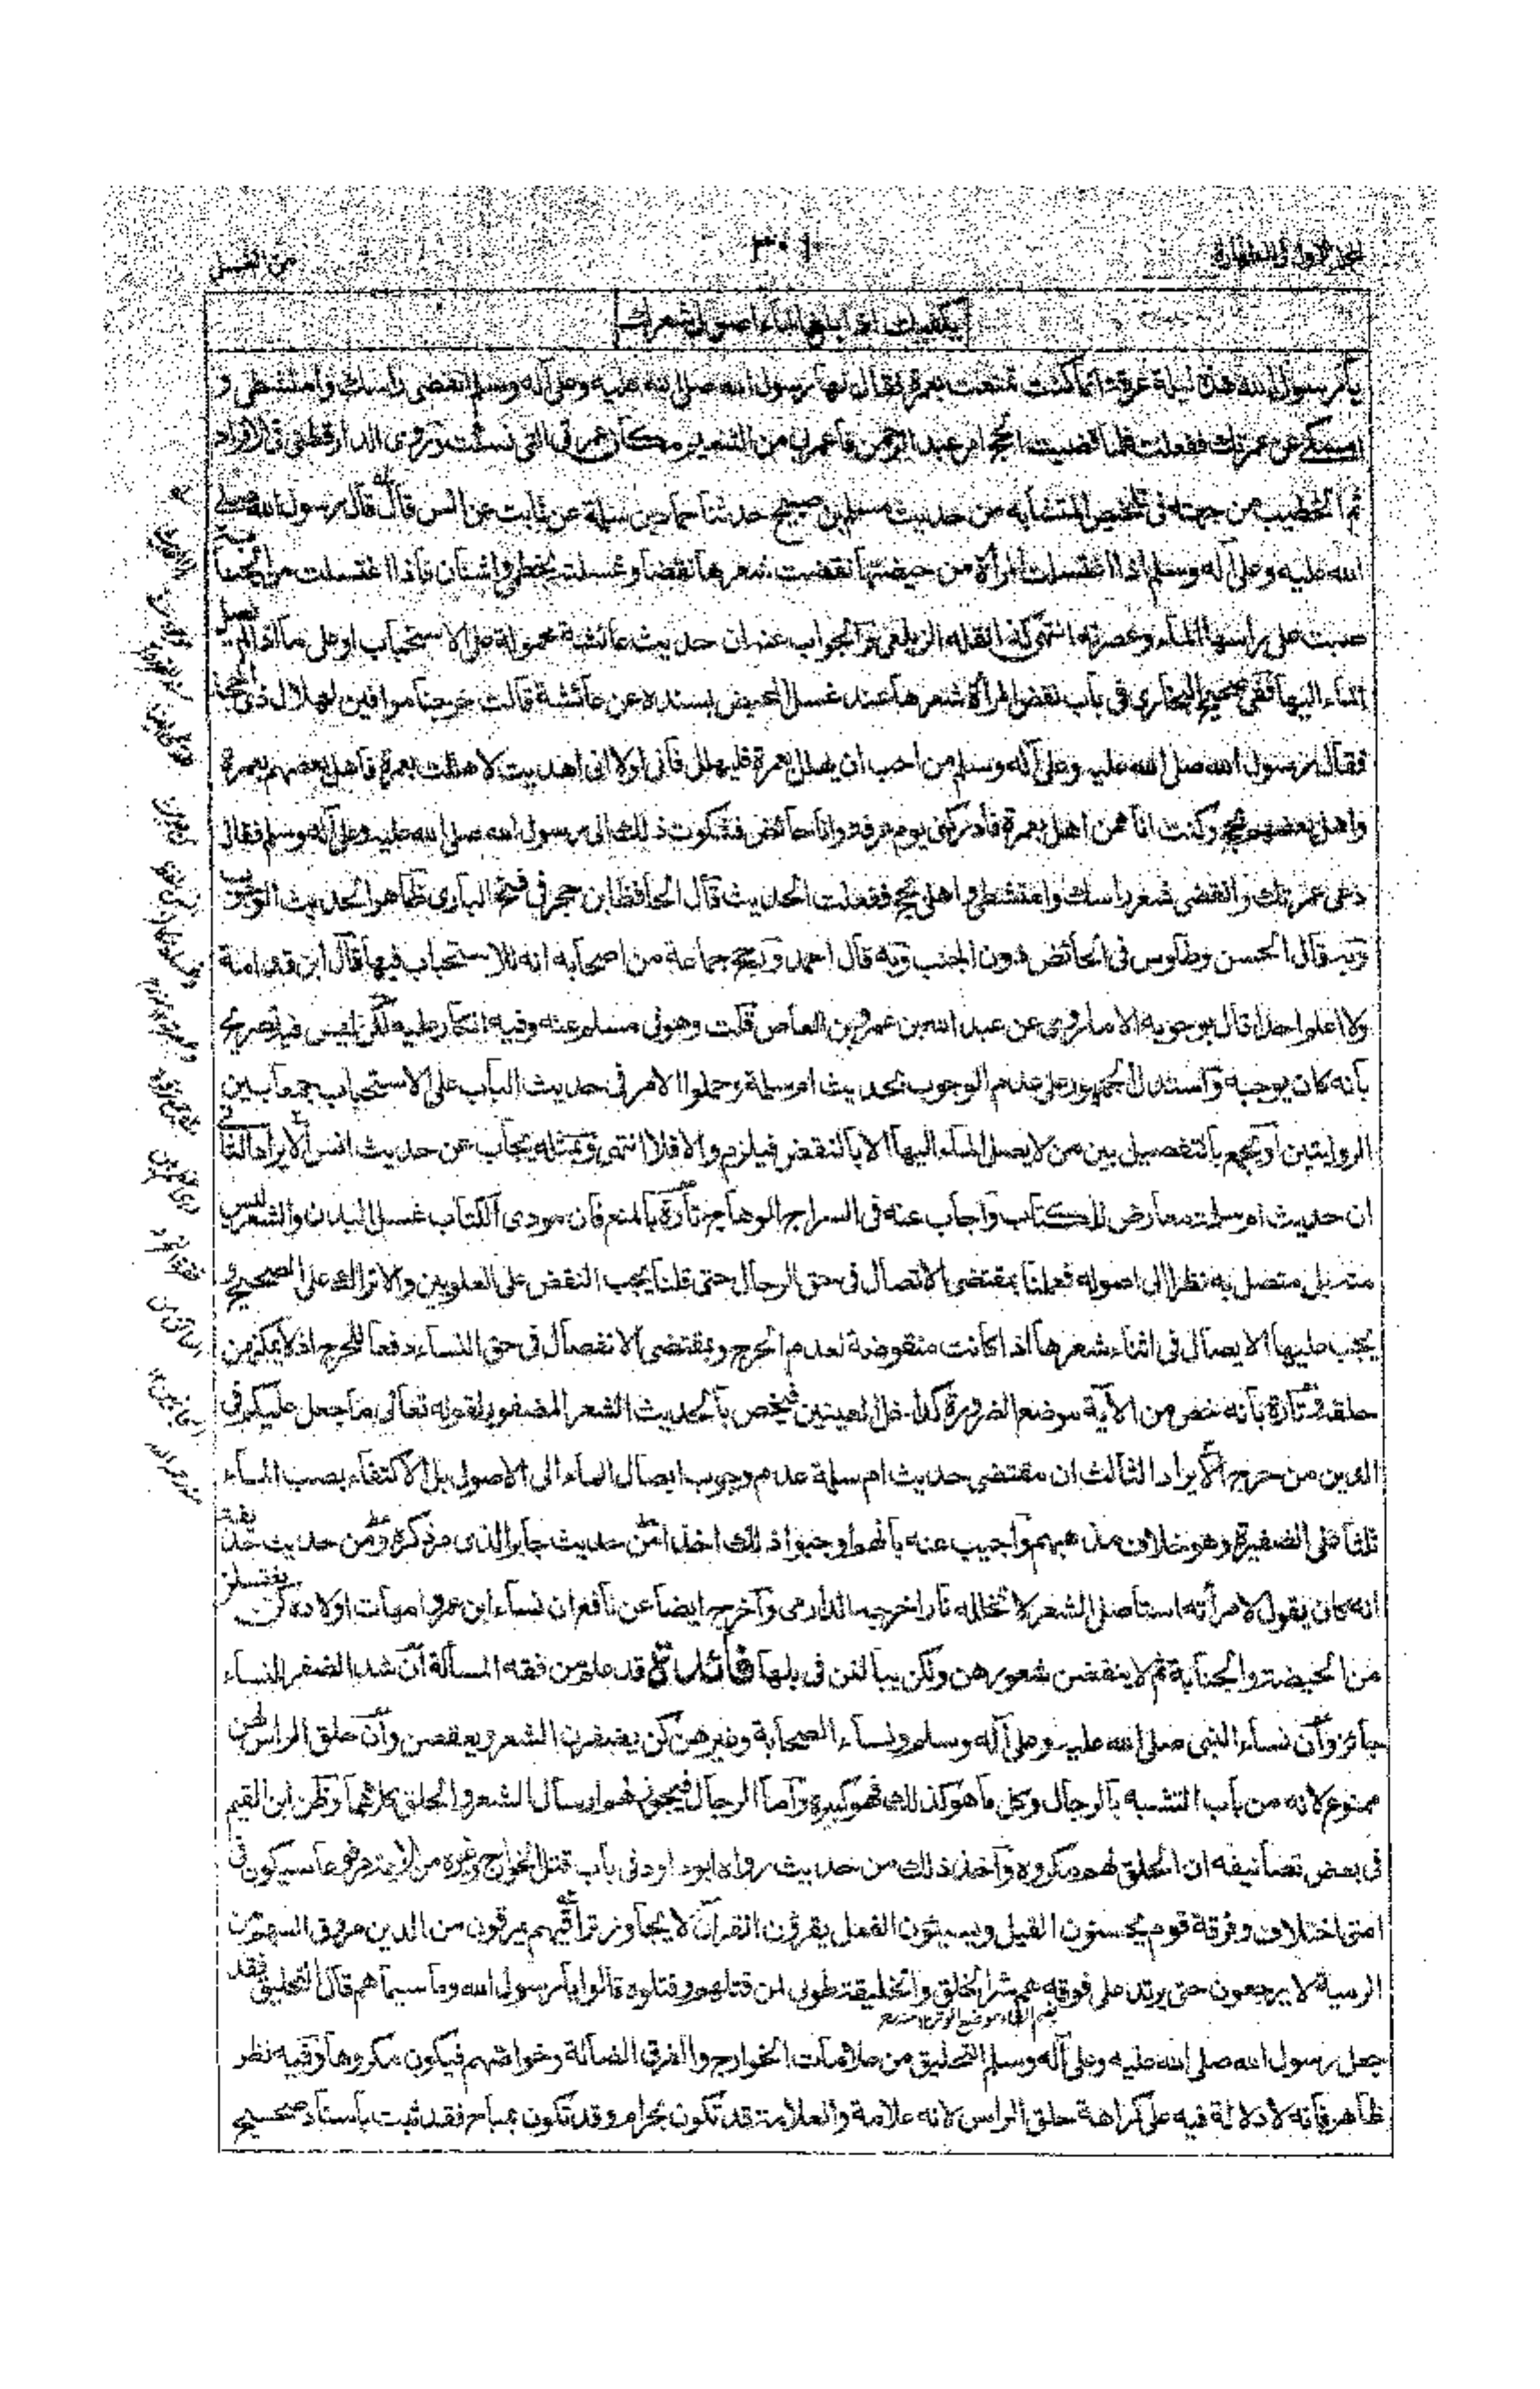 ٣٠١
يكفيك اذا بلغ الماء اصول شعرك
يا رسول الله هذه ليلة عرفة وانما كنت تمتعت بعمرة فقال لها رسول الله صلى الله عليه وعلى آله وسلم انقضى راسك وامتشطى و
امسكى عن عمرتك ففعلت فلما قضيت الحج امر عبد الرحمن فاعمرنى من التنعيم مكان عمرتى التى نسكت وروى الدارقطنى فى الافراد
ثم الخطيب من جهته فى تلخيص المتشابه من حديث مسلم بن صبيح حدثنا حماد بن سلمة عن ثابت عن انس قال قال رسول الله صلى
الله عليه وعلى آله وسلم اذا اغتسلت المرأة من حيضتها نقضت شعرها نقضا وغسلته بخطمى واشنان فاذا اغتسلت من الجنابة
صبت على راسها الماء وعصرته انتهى كذا نقله الزيلعى والجواب عنه ان حديث عائشة محمولة على الاستحباب او على ما اذا لم يصل
الماء اليها ففى صحيح البخارى فى باب نقض المرأة شعرها عند غسل المحيض بسنده عن عائشة قالت خرجنا موافين لهلال ذى الحجة
فقال رسول الله صلى الله عليه وعلى آله وسلم من احب ان يهلل بعمرة فليهلل فانى لولا انى اهديت لاهللت بعمرة فاهل بعضهم بعمرة
واهل بعضهم بحج وكنت انا ممن اهل بعمرة فادركنى يوم عرفة وانا حائض فشكوت ذلك الى رسول الله صلى الله عليه وعلى آله وسلم فقال
دعى عمرتك وانقضى شعر راسك وامتشطى واهلى بحج ففعلت الحديث قال الحافظ ابن حجر فى فتح البارى ظاهر الحديث الوجوب
وبه قال الحسن وطاوس فى الحائض دون الجنب وبه قال احمد ورجح جماعة من اصحابه انه للاستحباب فيها قال ابن قدامة
ولا اعلم احدا قال بوجوبه الا ما روى عن عبد الله بن عمرو بن العاص قلت وهو فى مسلم عنه وفيه انكار عليه لكن ليس فيه تصريح
بانه كان يوجبه واستدل الجمهور على عدم الوجوب بحديث ام سلمة وحملوا الامر فى حديث الباب على الاستحباب جمعا بين
الروايتين او يجمع بالتفصيل بين من لا يصل الماء اليها الا بالنقض فيلزم والا فلا انتهى وبمثله يجاب عن حديث انس الايراد الثانى
ان حديث ام سلمة معارض للكتاب واجاب عنه فى السراج الوهاج تارة بالمنع فان مودى الكتاب غسل البدن والشعر ليس
متصل به نظرا الى اصوله فعلنا بمقتضى الاتصال فى حق الرجال حتى قلنا يجب النقض على العلويين والاتراك على الصحيح و
يجب عليها الايصال فى اثناء شعرها اذا كانت منقوضة لعدم الحرج وبمقتضى الانفصال فى حق النساء دفعا للحرج اذ لا يمكنهن
حلقه وتارة بانه خص من الآية موضع الضرورة كداخل العينين فيخص بالحديث الشعر المضفور لقوله تعالى ما جعل عليكم فى
الدين من حرج الايراد الثالث ان مقتضى حديث ام سلمة عدم وجوب ايصال الماء الى الاصول بل الاكتفاء بصب الماء
ثلثا على الضفيرة وهو خلاف مذهبهم واجيب عنه بانهم اوجبوا ذلك اخذا من حديث جابر الذى مر ذكره ومن حديث حذيفة
انه كان يقول لامرأته استاصلى الشعر لا تخلله نار اخرجه الدارمى واخرج ايضا عن نافع ان نساء ابن عمر وامهات اولاده كن يغتسلن
من الحيضة والجنابة ثم لا ينقضن شعورهن ولكن يبالغن فى بلها فائدة قد علم من فقه المسألة ان شد الضفر للنساء
جائز وان نساء النبى صلى الله عليه وعلى آله وسلم ونساء الصحابة وغيرهن كن يضفرن الشعر ويعقصن وان حلق الراس لهن
ممنوع لانه من باب التشبه بالرجال وكل ما هو كذلك فهو كبيرة واما الرجال فيجوز لهم ارسال الشعر والحلق كلاهما وظن ابن القيم
فى بعض تصانيفه ان الحلق لهم مكروه واخذ ذلك من حديث رواه ابو داود فى باب قتل الخوارج وغيره من الائمة مرفوعا سيكون فى
امتى اختلاف وفرقة قوم يحسنون القيل ويسيئون الفعل يقرؤن القرآن لا يجاوز تراقيهم يمرقون من الدين مروق السهم من
الرمية لا يرجعون حتى يرتد على فوقه هم شر الخلق والخليقة طوبى لمن قتلهم وقتلوه قالوا يا رسول الله وما سيماهم قال التحليق فقد
جعل رسول الله صلى الله عليه وعلى آله وسلم التحليق من علامات الخوارج والفرق الضالة وخواصهم فيكون مكروها وفيه نظر
ظاهر فانه لا دلالة فيه على كراهة حلق الراس لانه علامة والعلامة قد تكون بحرام وقد تكون بمباح فقد ثبت باسناد صحيح